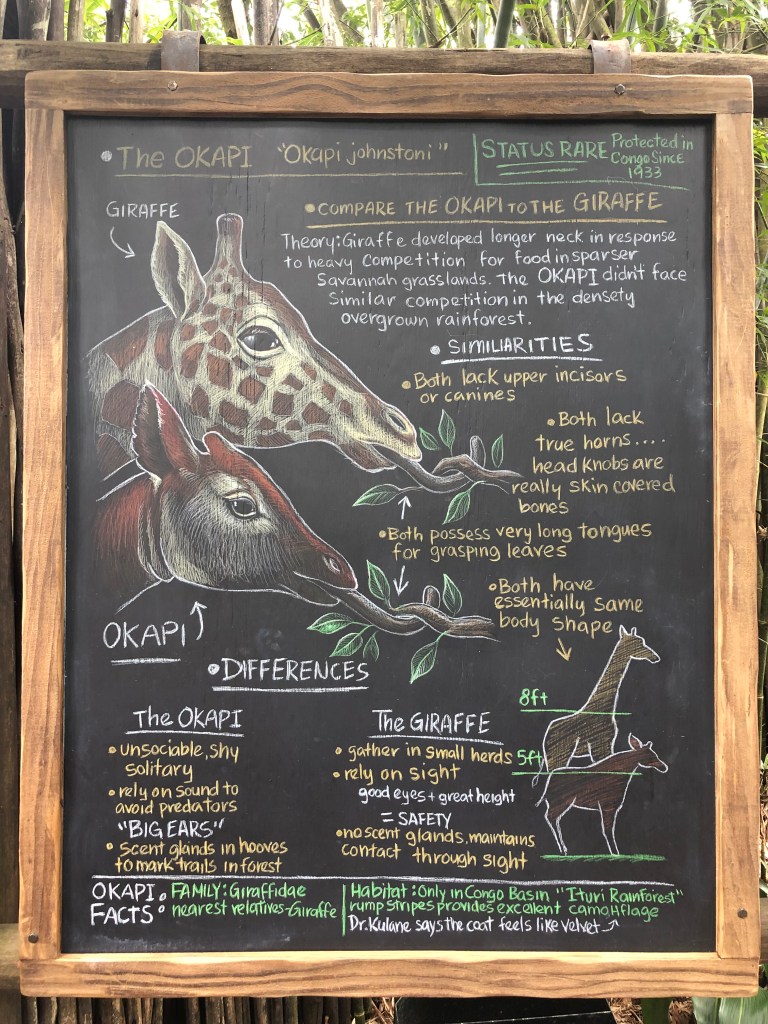 • The OKAPI "Okapi johnstoni"
STATUS RARE
Protected in
Congo Since
1933
GIRAFFE
• COMPARE THE OKAPI TO THE GIRAFFE
Theory: Giraffe developed longer neck in response
to heavy competition for food in sparser
Savannah grasslands. The OKAPI didn't face
Similar competition in the densety
overgrown rainforest.
• SIMILIARITIES
• Both lack upper incisors
or canines
• Both lack
true horns....
head knobs are
really skin covered
bones
• Both possess very long tongues
for grasping leaves
• Both have
essentially same
body shape
OKAPI
8ft
5ft
• DIFFERENCES
The OKAPI
• unsociable, shy
solitary
• rely on sound to
avoid predators
"BIG EARS"
• scent glands in hooves
to mark trails in forest
The GIRAFFE
• gather in small herds
• rely on sight
good eyes + great height
= SAFETY
• no scent glands, maintains
contact through sight
OKAPI
FACTS
• FAMILY: Giraffidae
• nearest relatives-Giraffe
Habitat: Only in Congo Basin, "Ituri Rainforest"
rump stripes provides excellent camoHflage
Dr. Kulane says the coat feels like velvet